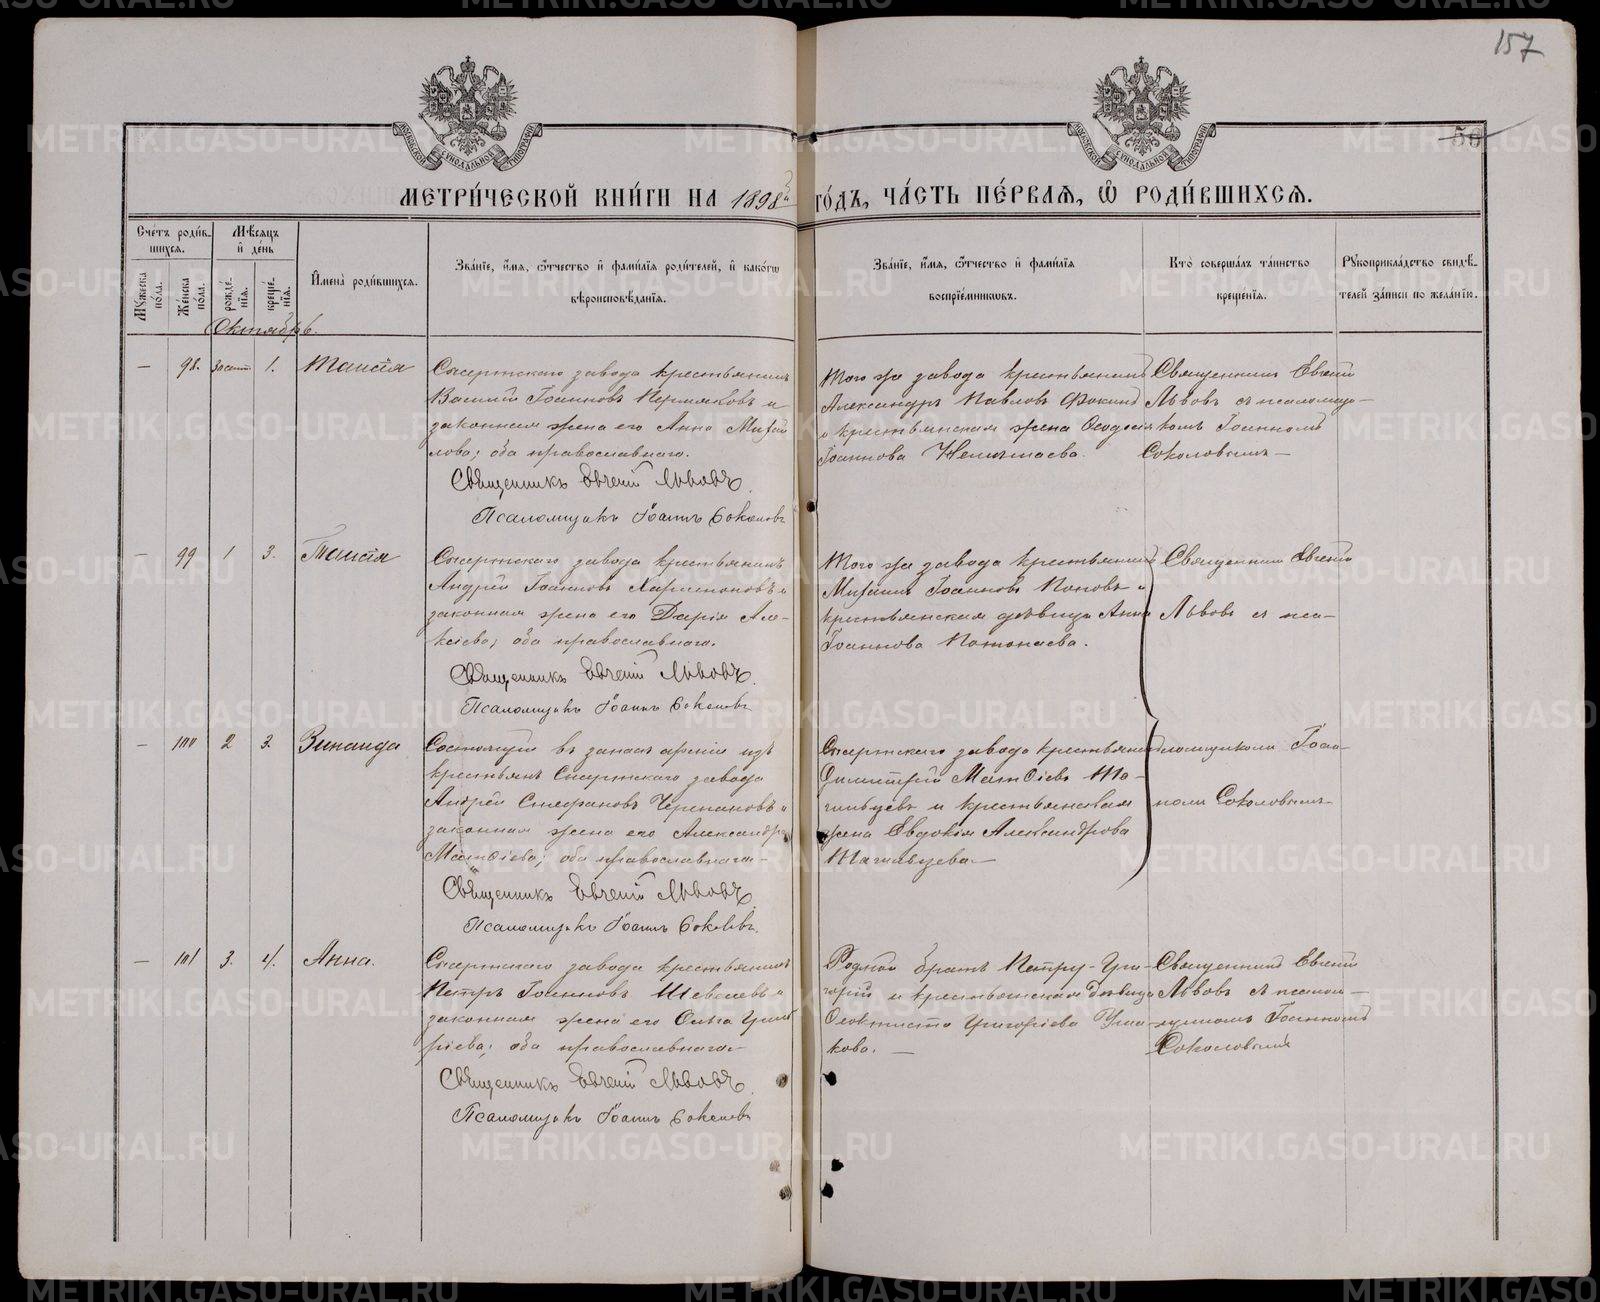 157
50
МЕТРИ́ЧЕСКОЙ КНИ́ГИ НА 1898й ГО́ДЪ, ЧА́СТЬ ПЕ́РВАЯ, Ѡ҆ РОДИ́ВШИХСЯ.
Сче́тъ роди́вшихся.
Му́жеска по́ла.
Же́нска по́ла.
Мѣ́сяцъ и҆ де́нь
рожде́нїя.
креще́нїя.
И҆мена̀ роди́вшихся.
Зва́нїе, и҆́мя, ѻ҆́тчество и҆ фами́лїя роди́телей, и҆ како́гѡ
вѣроисповѣ́данїя.
Зва́нїе, и҆́мя, ѻ҆́тчество и҆ фами́лїя
воспрїе́мникѡвъ.
Кто̀ соверша́лъ та́инство
креще́нїя.
Рꙋкоприкла́дство свидѣ́-
телей за́писи по жела́нїю.
Октябрь.
— 98. 1. Таисія
Сысертскаго завода крестьянинъ
Василій Іоанновъ Пермяковъ и
законная жена его Анна Михай
лова; оба православнаго.
Священникъ Евгеній Львовъ.
Псаломщикъ Іоаннъ Соколовъ
Того же завода крестьянинъ
Александръ Павловъ Фокинъ
и крестьянская жена Ѳеодосія
Іоаннова
Священникъ Евгеній
Львовъ съ псаломщи-
комъ Іоанномъ
Соколовымъ—
— 99 1 3. Таисія
Сысертскаго завода крестьянинъ
Андрей Іоанновъ Харитоновъ и
законная жена его Дарія Але-
ксіева; оба православнаго.
Священникъ Евгеній Львовъ.
Псаломщикъ Іоаннъ Соколовъ
Того же завода крестьянинъ
Михаилъ Іоанновъ Поповъ и
крестьянская дѣвица Анна
Іоаннова
Священникъ Евгеній
Львовъ съ пса-
— 100 2 3. Зинаида
Состоящій въ запасѣ арміи изъ
крестьянъ Сысертскаго завода
Андрей Стефановъ Черепановъ и
законная жена его Александра
Матѳіева; оба православнаго—
Священникъ Евгеній Львовъ
Псаломщикъ Іоаннъ Соколовъ.
Сысертскаго завода крестьянинъ
Димитрій Матѳіевъ Та-
гильцевъ и крестьянская
жена Евдокія Александрова
Тагильцева.—
ломщикомъ Іоан-
номъ Соколовымъ
— 101 3. 4. Анна.
Сысертскаго завода крестьянинъ
Петръ Іоанновъ Шевелевъ и
законная жена его Ольга Григо
ріева; оба православнаго—
Священникъ Евгеній Львовъ.
Псаломщикъ Іоаннъ Соколовъ
Родной братъ Петру-Гри-
горій и крестьянская дѣвица
Ѳеоктиста Григоріева Уша-
кова. —
Священникъ Евгеній
Львовъ съ псалом-
щикомъ Іоанномъ
Соколовымъ
METRIKI.GASO-URAL.RU